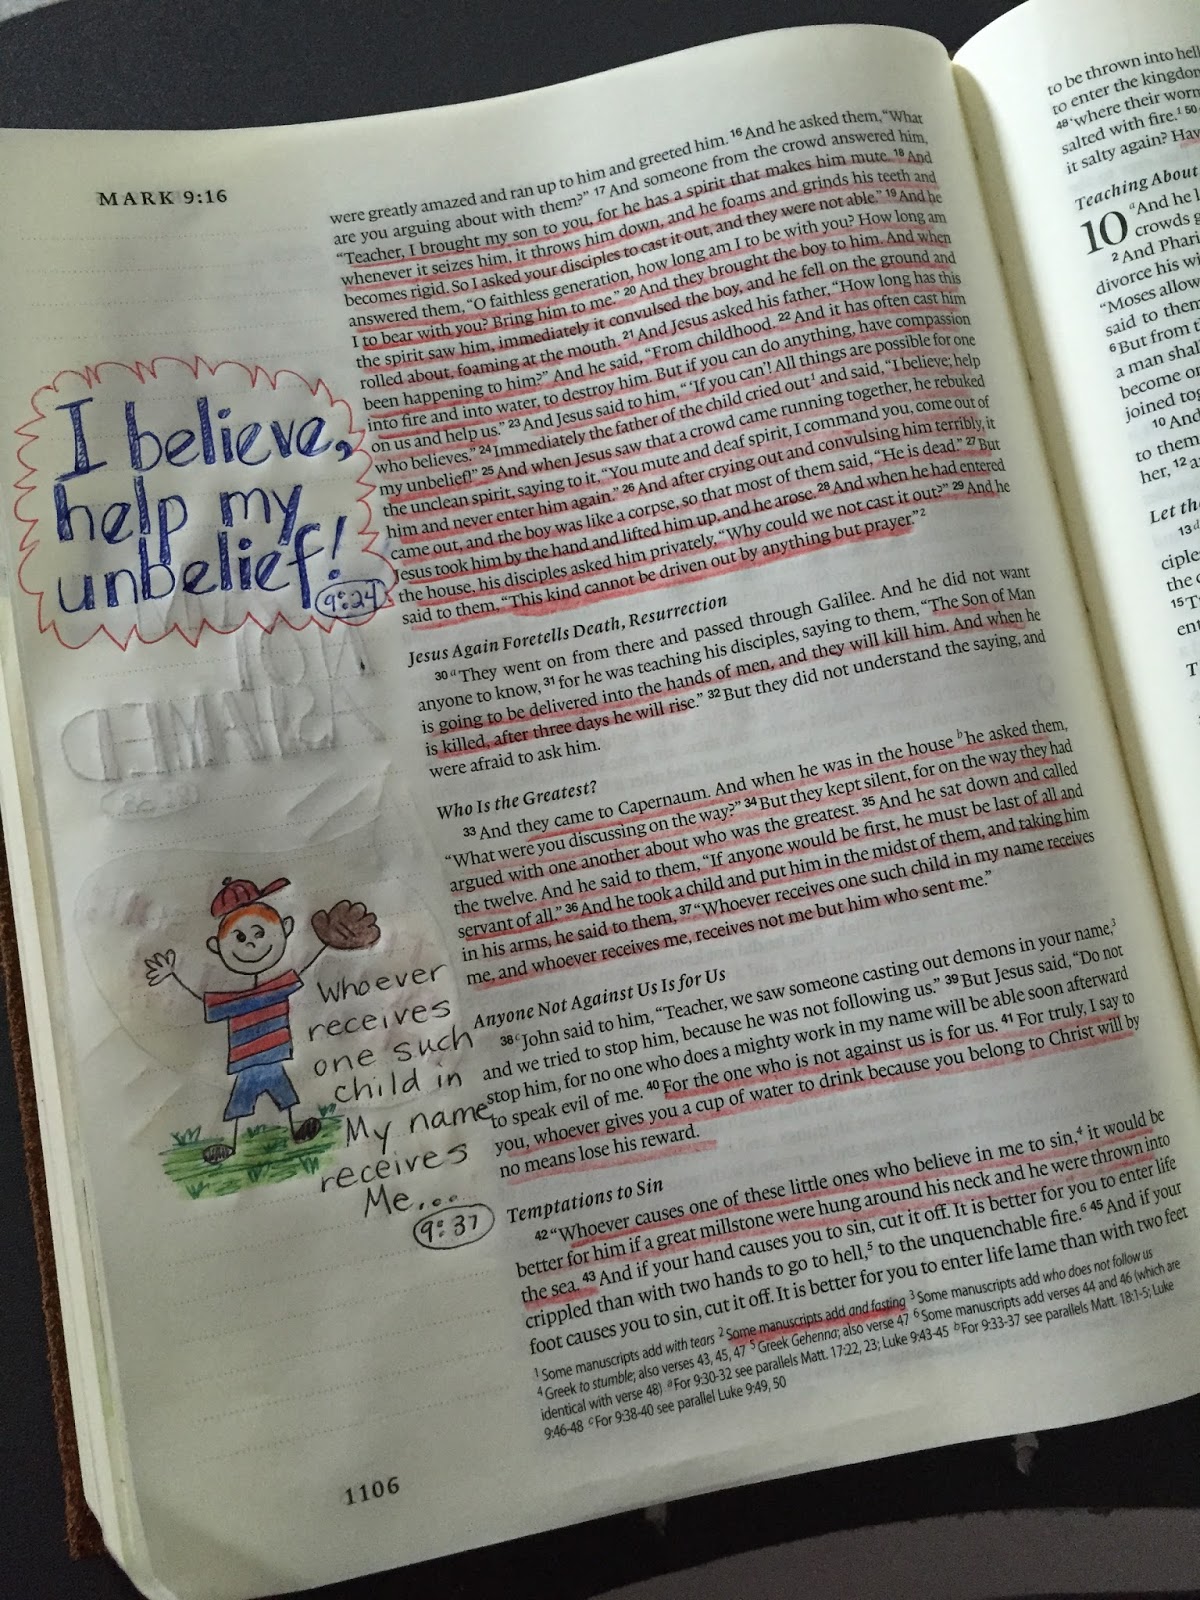 MARK 9:16
were greatly amazed and ran up to him and greeted him. 16 And he asked them, “What
are you arguing about with them?” 17 And someone from the crowd answered him,
“Teacher, I brought my son to you, for he has a spirit that makes him mute. 18 And
whenever it seizes him, it throws him down, and he foams and grinds his teeth and
becomes rigid. So I asked your disciples to cast it out, and they were not able.” 19 And he
answered them, “O faithless generation, how long am I to be with you? How long am
I to bear with you? Bring him to me.” 20 And they brought the boy to him. And when
the spirit saw him, immediately it convulsed the boy, and he fell on the ground and
rolled about, foaming at the mouth. 21 And Jesus asked his father, “How long has this
been happening to him?” And he said, “From childhood. 22 And it has often cast him
into fire and into water, to destroy him. But if you can do anything, have compassion
on us and help us.” 23 And Jesus said to him, “‘If you can’! All things are possible for one
who believes.” 24 Immediately the father of the child cried out1 and said, “I believe; help
my unbelief!” 25 And when Jesus saw that a crowd came running together, he rebuked
the unclean spirit, saying to it, “You mute and deaf spirit, I command you, come out of
him and never enter him again.” 26 And after crying out and convulsing him terribly, it
came out, and the boy was like a corpse, so that most of them said, “He is dead.” 27 But
Jesus took him by the hand and lifted him up, and he arose. 28 And when he had entered
the house, his disciples asked him privately, “Why could we not cast it out?” 29 And he
said to them, “This kind cannot be driven out by anything but prayer.”2
I believe,
help my
unbelief!
9:24
Jesus Again Foretells Death, Resurrection
30 a They went on from there and passed through Galilee. And he did not want
anyone to know, 31 for he was teaching his disciples, saying to them, “The Son of Man
is going to be delivered into the hands of men, and they will kill him. And when he
is killed, after three days he will rise.” 32 But they did not understand the saying, and
were afraid to ask him.
Who Is the Greatest?
33 And they came to Capernaum. And when he was in the house b he asked them,
“What were you discussing on the way?” 34 But they kept silent, for on the way they had
argued with one another about who was the greatest. 35 And he sat down and called
the twelve. And he said to them, “If anyone would be first, he must be last of all and
servant of all.” 36 And he took a child and put him in the midst of them, and taking him
in his arms, he said to them, 37 “Whoever receives one such child in my name receives
me, and whoever receives me, receives not me but him who sent me.”
Anyone Not Against Us Is for Us
38 c John said to him, “Teacher, we saw someone casting out demons in your name,3
and we tried to stop him, because he was not following us.” 39 But Jesus said, “Do not
stop him, for no one who does a mighty work in my name will be able soon afterward
to speak evil of me. 40 For the one who is not against us is for us. 41 For truly, I say to
you, whoever gives you a cup of water to drink because you belong to Christ will by
no means lose his reward.
Whoever
receives
one such
child in
My name
receives
Me...
9:37
Temptations to Sin
42 “Whoever causes one of these little ones who believe in me to sin,4 it would be
better for him if a great millstone were hung around his neck and he were thrown into
the sea. 43 And if your hand causes you to sin, cut it off. It is better for you to enter life
crippled than with two hands to go to hell,5 to the unquenchable fire.6 45 And if your
foot causes you to sin, cut it off. It is better for you to enter life lame than with two feet
1 Some manuscripts add with tears 2 Some manuscripts add and fasting 3 Some manuscripts add who does not follow us
4 Greek to stumble; also verses 43, 45, 47 5 Greek Gehenna; also verse 47 6 Some manuscripts add verses 44 and 46 (which are
identical with verse 48) a For 9:30-32 see parallels Matt. 17:22, 23; Luke 9:43-45 b For 9:33-37 see parallels Matt. 18:1-5; Luke
9:46-48 c For 9:38-40 see parallel Luke 9:49, 50
1106
to be thrown into hell
to enter the kingdom
48 ‘where their worm
salted with fire.1 50
it salty again?
Teaching About
10 a And he l
crowds g
2 And Phari
divorce his wi
“Moses allow
said to them
6 But from t
a man shal
become on
joined tog
10 And
to them
her, 12 a
Let the
13
ciple
the c
15 T
ent
T